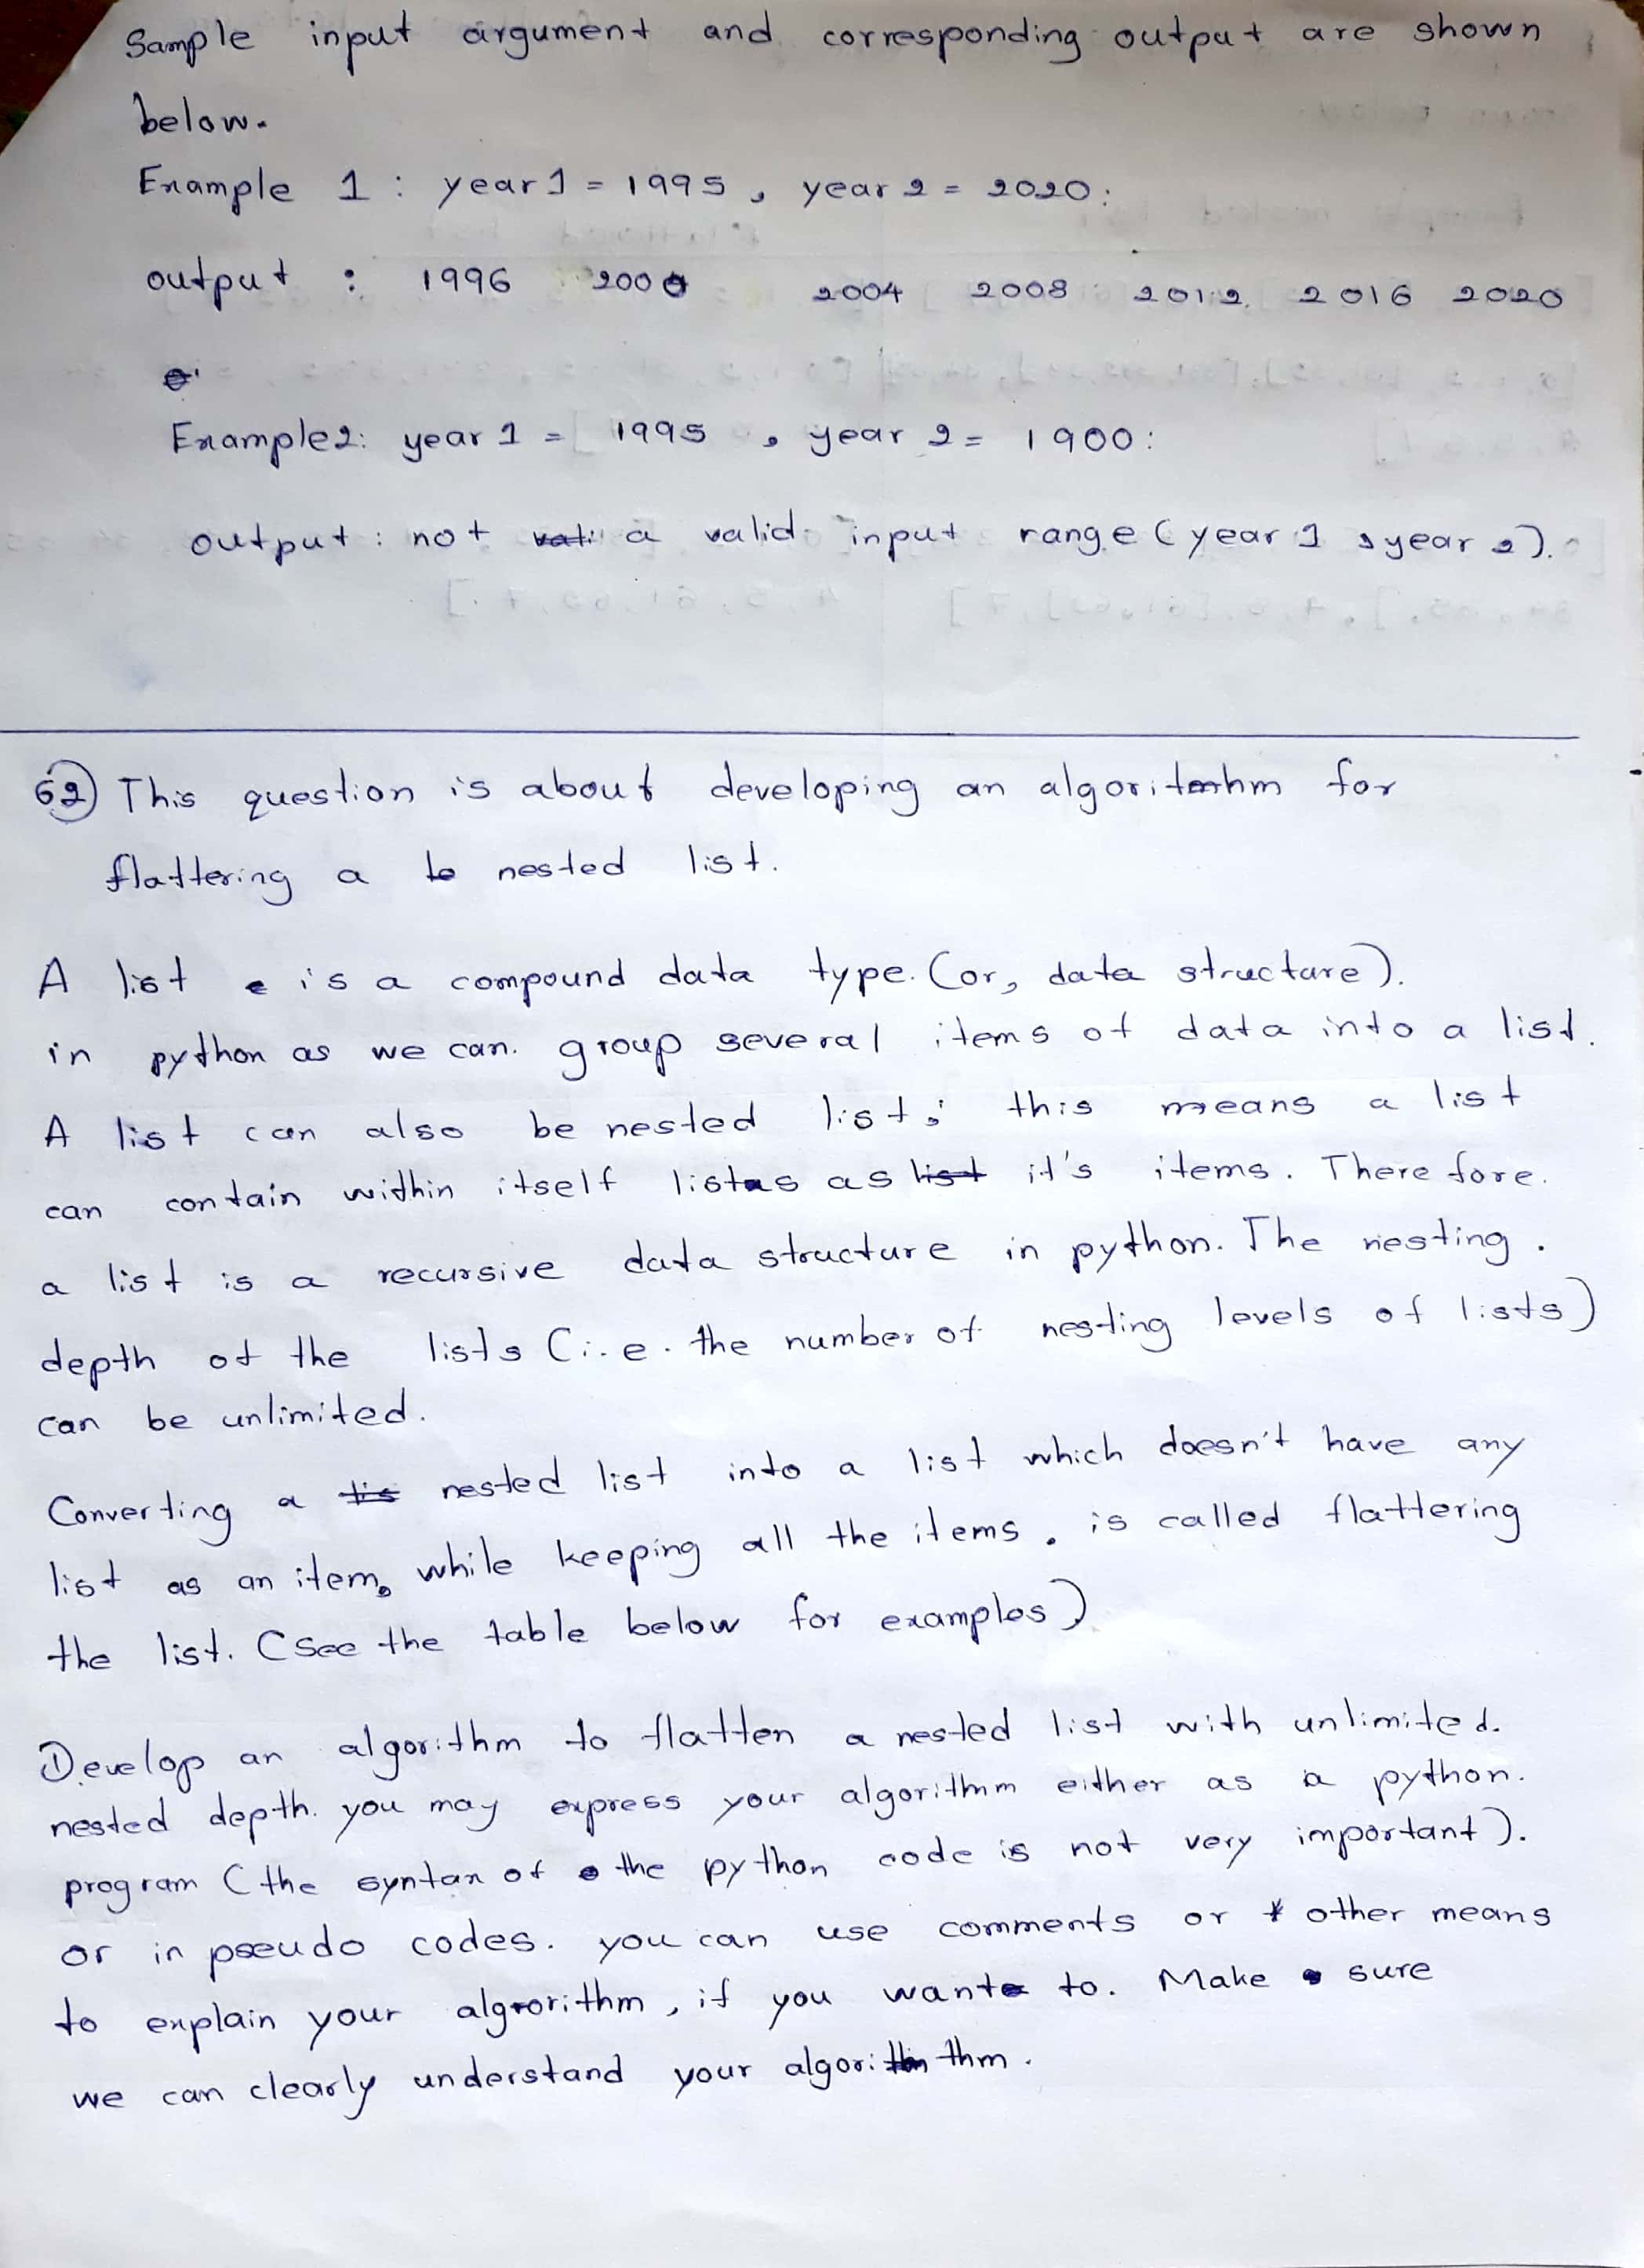 Sample input argument and corresponding output are shown
below.
Example 1 : year 1 = 1995 , year 2 = 2020 :
output : 1996 2000 2004 2008 2012 2016 2020
Example 2: year 1 = 1995 , year 2 = 1900 :
output : not a valid input range (year 1 , year 2).
62 This question is about developing an algorithm for
flattering a nested list.
A list is a compound data type. (or, data structure).
in python as we can. group several items of data into a list.
A list can also be nested list; this means a list
can contain within itself lists as it's items. Therefore.
a list is a recursive data structure in python. The nesting.
depth of the lists (i.e. the number of nesting levels of lists)
can be unlimited.
Converting a nested list into a list which doesn't have any
list as an item, while keeping all the items. is called flattering
the list. (See the table below for examples)
Develop an algorithm to flatten a nested list with unlimited.
nested depth. you may express your algorithm either as a python.
program (the syntax of the python code is not very important).
or in pseudo codes. you can use comments or other means
to explain your algorithm, if you want to. Make sure
we can clearly understand your algorithm.